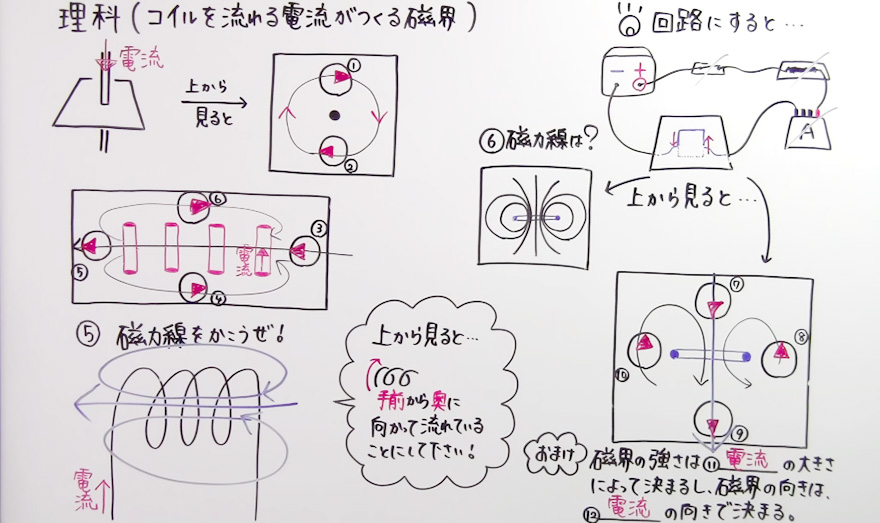 理科(コイルを流れる電流がつくる磁界)
電流
上から
見ると
①
②
⑥
③
電流
⑤
④
⑤ 磁力線をかこうぜ!
電流
上から見ると…
手前から奥に
向かって流れている
ことにして下さい!
回路にすると…
− +
A
⑥磁力線は?
上から見ると…
⑦
⑧
⑩
⑨
おまけ
磁界の強さは⑪電流の大きさ
によって決まるし、磁界の向きは、
⑫電流の向きで決まる。